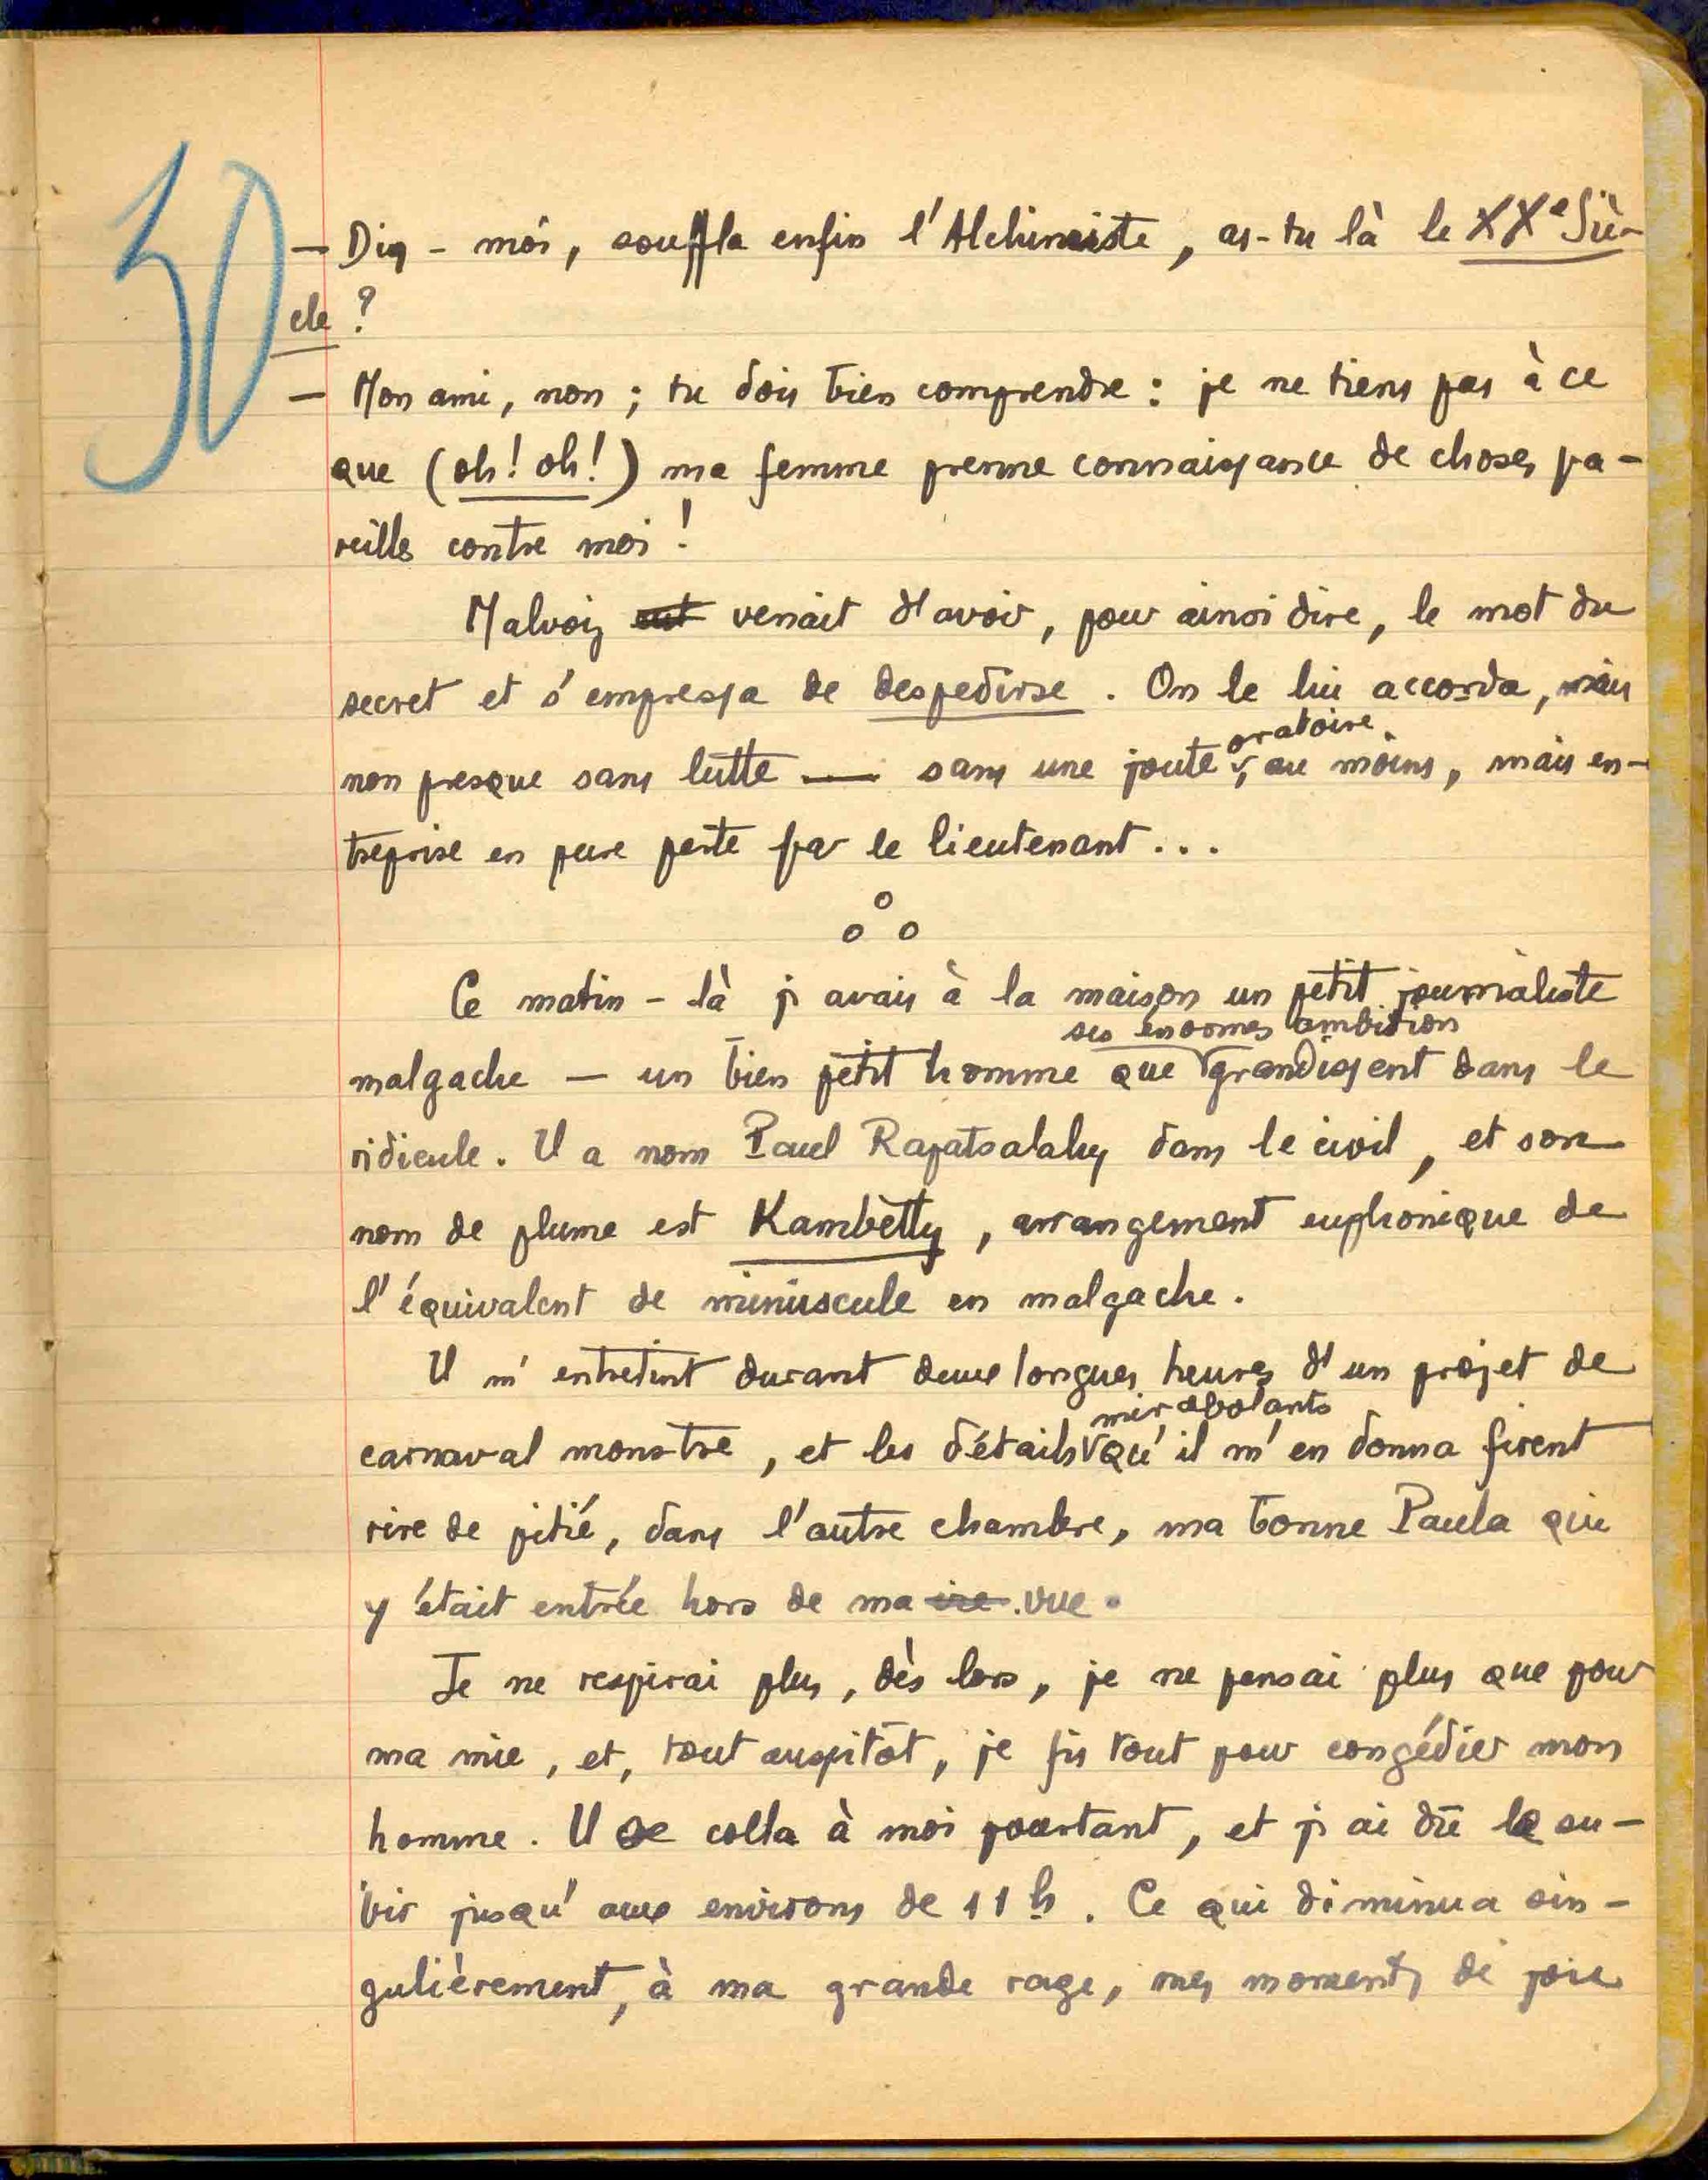 30
— Dis-moi, souffla enfin l'Alchimiste, as-tu là le XXe Siè-
cle ?
— Mon ami, non ; tu dois bien comprendre : je ne tiens pas à ce
que (oh! oh!) ma femme prenne connaissance de choses pa-
reilles contre moi !
Malvoiz eut venait d'avoir, pour ainsi dire, le mot du
secret et s'empressa de despedirse. On le lui accorda, mais
non presque sans lutte — sans une joute oratoire, au moins, mais en-
treprise en pure perte par le lieutenant...
o
o o
Ce matin-là j'avais à la maison un petit journaliste
malgache — un bien petit homme que ses énormes ambition grandissent dans le
ridicule. Il a nom Paul Rapatsalahy dans le civil, et son
nom de plume est Kambetty, arrangement euphonique de
l'équivalent de minuscule en malgache.
Il m'entretint durant deux longues heures d'un projet de
carnaval monstre, et les détails mirobolants qu'il m'en donna firent
rire de pitié, dans l'autre chambre, ma bonne Paula qui
y était entrée hors de ma vue.
Je ne respirai plus, dès lors, je ne pensai plus que pour
ma mie, et, tout aussitôt, je fis tout pour congédier mon
homme. Il se colla à moi pourtant, et j'ai dû le su-
bir jusqu'aux environs de 11 h. Ce qui diminua sin-
gulièrement, à ma grande rage, mes moments de joie